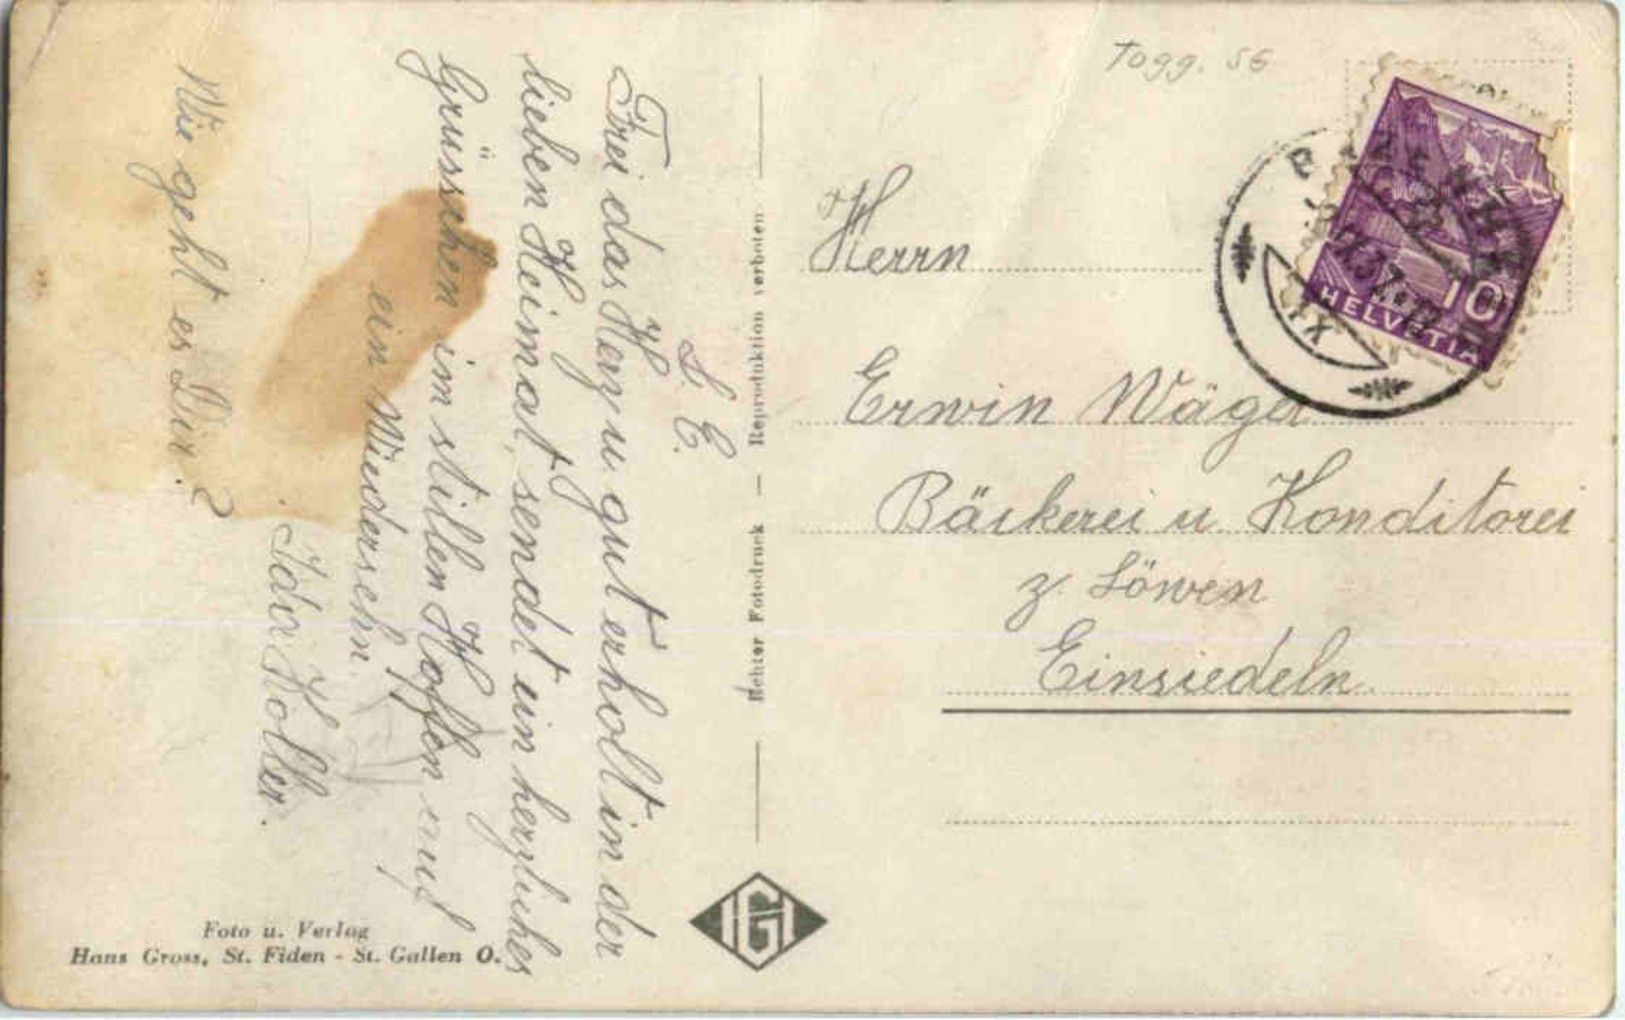 Togg. SG
HELVETIA
10
XIX
Herrn
Erwin Wägd
Bäckerei u. Konditorei
z. Löwen
Einsiedeln.
L. E.
Frei das Herz u gut erholt in der
lieben Heimat, sendet ein herzliches
Grüsschen im stillen Hoffen auf
ein Wiedersehn.
Ida Holler.
Wie geht es Dir?
Echter Fotodruck — Reproduktion verboten
Foto u. Verlag
Hans Gross, St. Fiden - St. Gallen O.